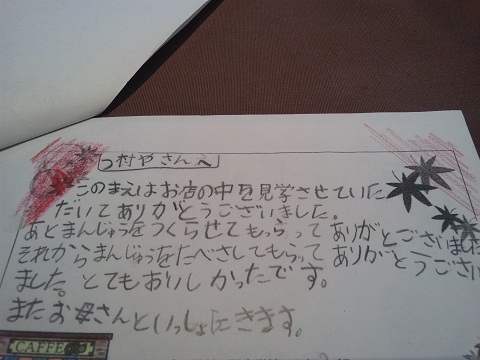 つ村やさんへ
このまえはお店の中を見学させていた
だいてありがとうございました。
あとまんじゅうをつくらせてもらってありがとございました
それからまんじゅうをたべさしてもらってありがとうござい
ました。とてもおいしかったです。
またお母さんといっしょにきます。
CAFFE